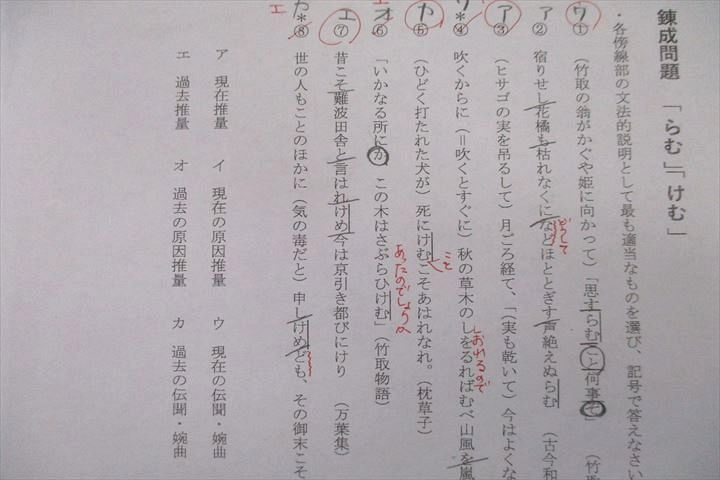 錬成問題　「らむ」「けむ」
・各傍線部の文法的説明として最も適当なものを選び、記号で答えなさい
ウ ① （竹取の翁がかぐや姫に向かって）「思すらむこと何事ぞ」　（竹
ア ② 宿りせし花橘も枯れなくになどほととぎす声絶えぬらむ　（古今和
どうして
ア ③ （ヒサゴの実を吊るして）月ごろ経て、「（実も乾いて）今はよくな
ウ *④ 吹くからに（＝吹くとすぐに）秋の草木のしをるればむべ山風を嵐
しおれるので
カ ⑤ （ひどく打たれた犬が）死にけむこそあはれなれ。（枕草子）
こと
オ ⑥ 「いかなる所にか、この木はさぶらひけむ」（竹取物語）
エ
あったのでしょうか
エ ⑦ 昔こそ難波田舎と言はれけめ今は京引き都びにけり　（万葉集）
カ *⑧ 世の人もことのほかに（気の毒だと）申しけめども、その御末こそ
エ
ア　現在推量　イ　現在の原因推量　ウ　現在の伝聞・婉曲
エ　過去推量　オ　過去の原因推量　カ　過去の伝聞・婉曲